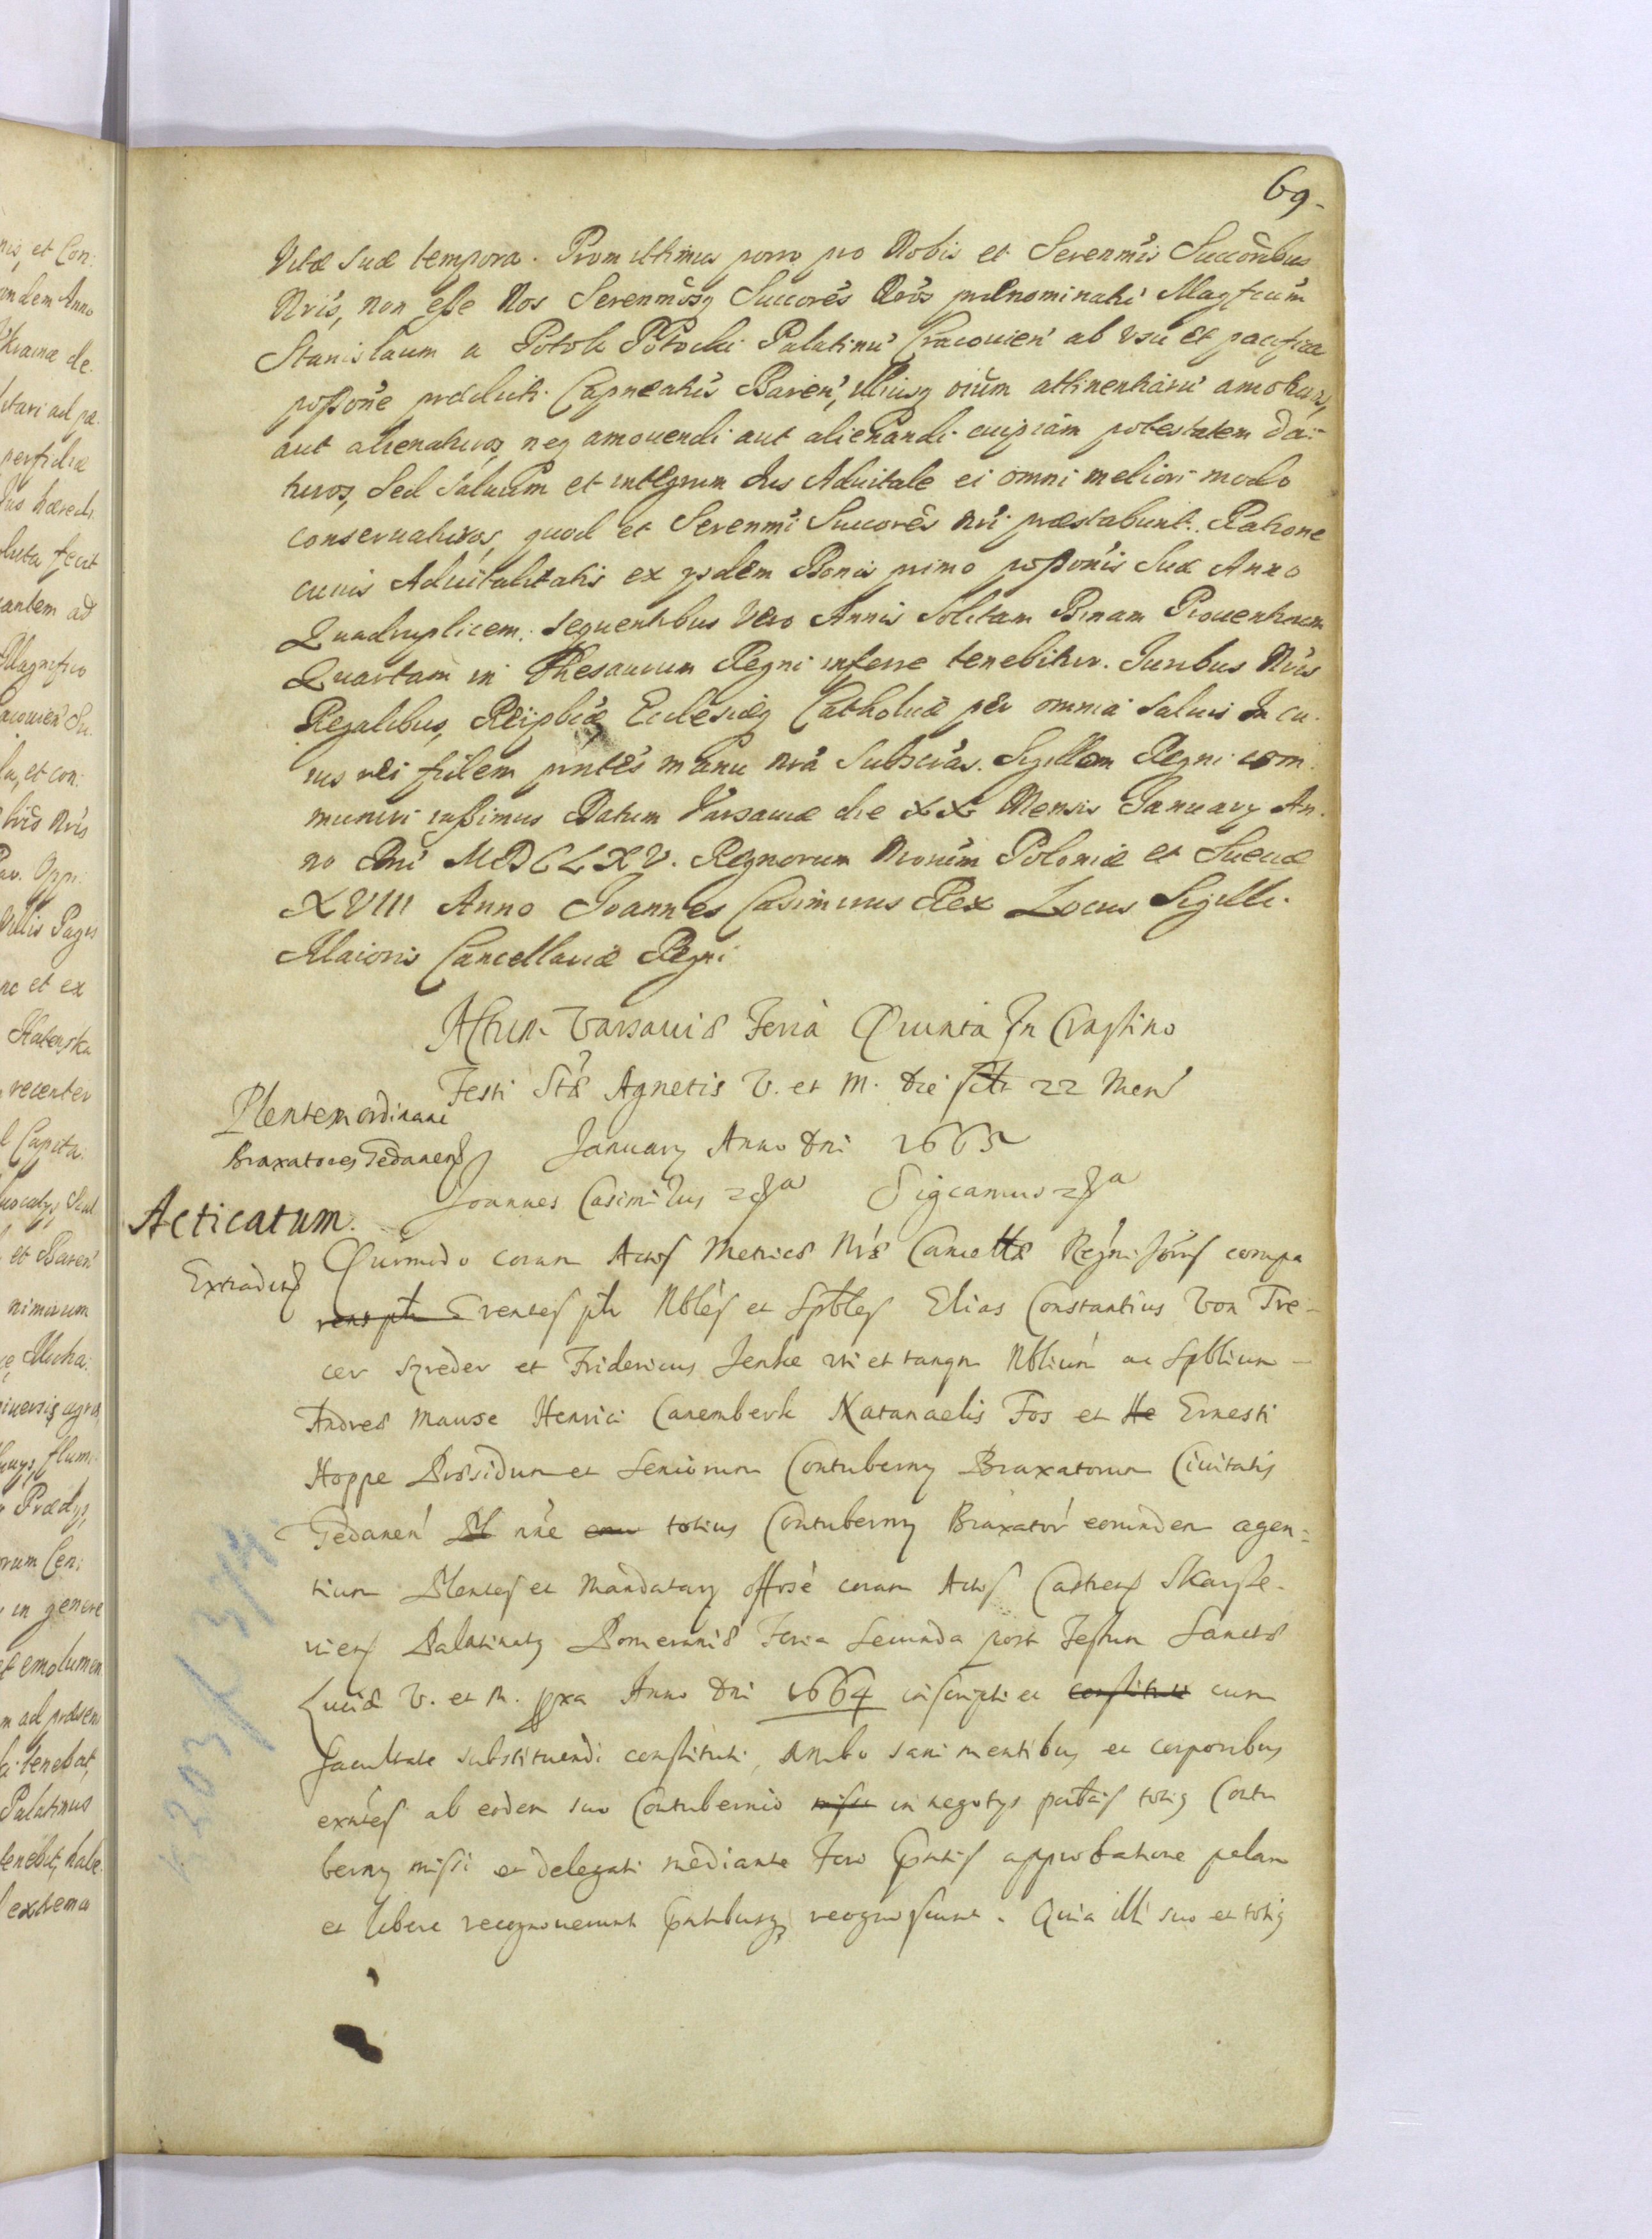 69.
Vitæ suæ tempora. Promittimus porro pro Nobis et Serenmis Succoribus
Nris, non esse Nos Serenmosq Succores Nros prænominatu Magficum
Stanislaum a Potok Potocki Palatinu Cracouien ab vsu et pacifica
possone prædicti Capneatus Barien, illiusq oium attinentiaru amoturos,
aut alienaturos, neq amouendi aut alienandi cuipiam potestatem da-
turos, Sed saluum et integrum Ius Aduitale ei omni meliori modo
conseruaturos, quod et Serenmi Succores nri præstabunt. Ratione
cuius Aduitalitatis ex ysdem Bonis primo possonis suæ Anno
Quadruplicem, sequentibus vero Annis solitam Binam Prouentuum
Quartam in Thesaurum Regni inferre tenebitur. Iuribus Nris
Regalibus, Reipbcæ Ecclesiæq Catholicæ per omnia saluis In cu-
ius rei fidem pntes manu nra Subscras. Sigillum Regni com-
muniri iussimus Datum Varsauiæ die XX Mensis January An-
no Dni MDCLXV. Regnorum Nrorum Poloniæ et Sueciæ
XVIII Anno Joannes Casimirus Rex Locus Sigilli
Maioris Cancellariæ Regni
Actum Varsauiæ Feria Quinta In Crastino
Festi Stæ Agnetis V. et M. die sctt 22 Mens
Plenten ordinant
Braxatores Gedanens
January Anno Dni 1665
Joannes Casimirus
Acticatum.
Extradits
coram Actis Metrices Cancell Regni compa
rent ptr rentes ptr Nbles et Spbles Elias Constantius Von Tre-
cer Szreder et Fridericus Jenke uti et tanqm Nblium ac Spblium
Andreæ Mause Henrici Canemberk Natanaelis Fos et He Ernesti
Hoppe Præsidum et Seniorum Contuberny Braxatorum Ciuitatis
Gedanen Pl nne totius Contuberny Braxator eorunden agen-
tium Plentes et Mandatary offose coram Actis Castrens Skarsze-
uiens Palatinaty Pomeraniæ Feria Secunda post Festum Sanctæ
Luciæ V. et M. pxa Anno Dni 1664 inscripti et constituti cum
facultate substituendi constituti, Ambo sani mentibus et corporibus
exntes ab eoden suo Contubernio missi in negotys totiq Contu
berny missi et delegati mediante approbatione palam
et libere recognouerunt recognoscunt. Quia illi suo et totiq